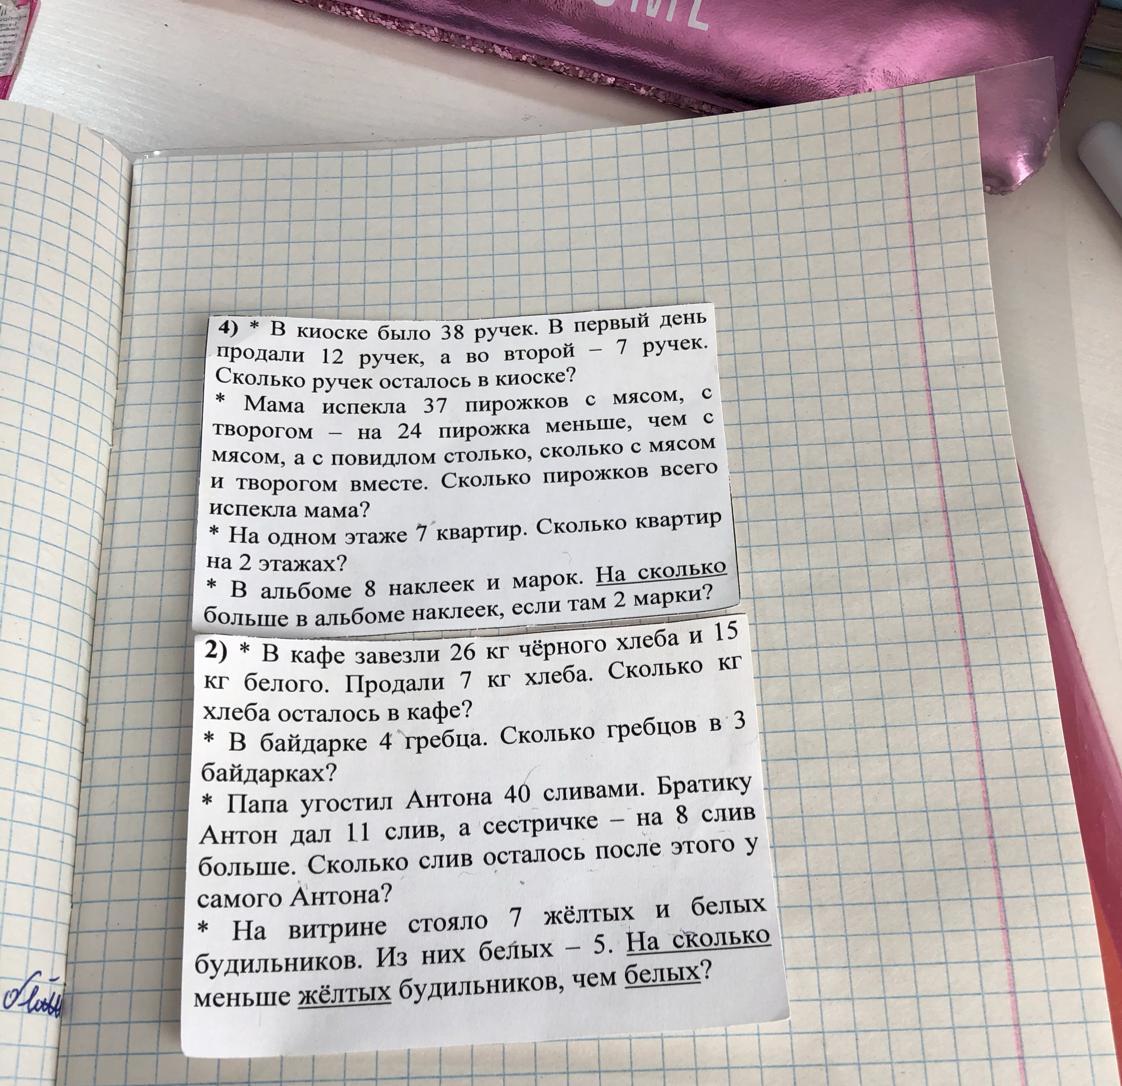 4) * В киоске было 38 ручек. В первый день
продали 12 ручек, а во второй – 7 ручек.
Сколько ручек осталось в киоске?
* Мама испекла 37 пирожков с мясом, с
творогом – на 24 пирожка меньше, чем с
мясом, а с повидлом столько, сколько с мясом
и творогом вместе. Сколько пирожков всего
испекла мама?
* На одном этаже 7 квартир. Сколько квартир
на 2 этажах?
* В альбоме 8 наклеек и марок. На сколько
больше в альбоме наклеек, если там 2 марки?
2) * В кафе завезли 26 кг чёрного хлеба и 15
кг белого. Продали 7 кг хлеба. Сколько кг
хлеба осталось в кафе?
* В байдарке 4 гребца. Сколько гребцов в 3
байдарках?
* Папа угостил Антона 40 сливами. Братику
Антон дал 11 слив, а сестричке – на 8 слив
больше. Сколько слив осталось после этого у
самого Антона?
* На витрине стояло 7 жёлтых и белых
будильников. Из них белых – 5. На сколько
меньше жёлтых будильников, чем белых?